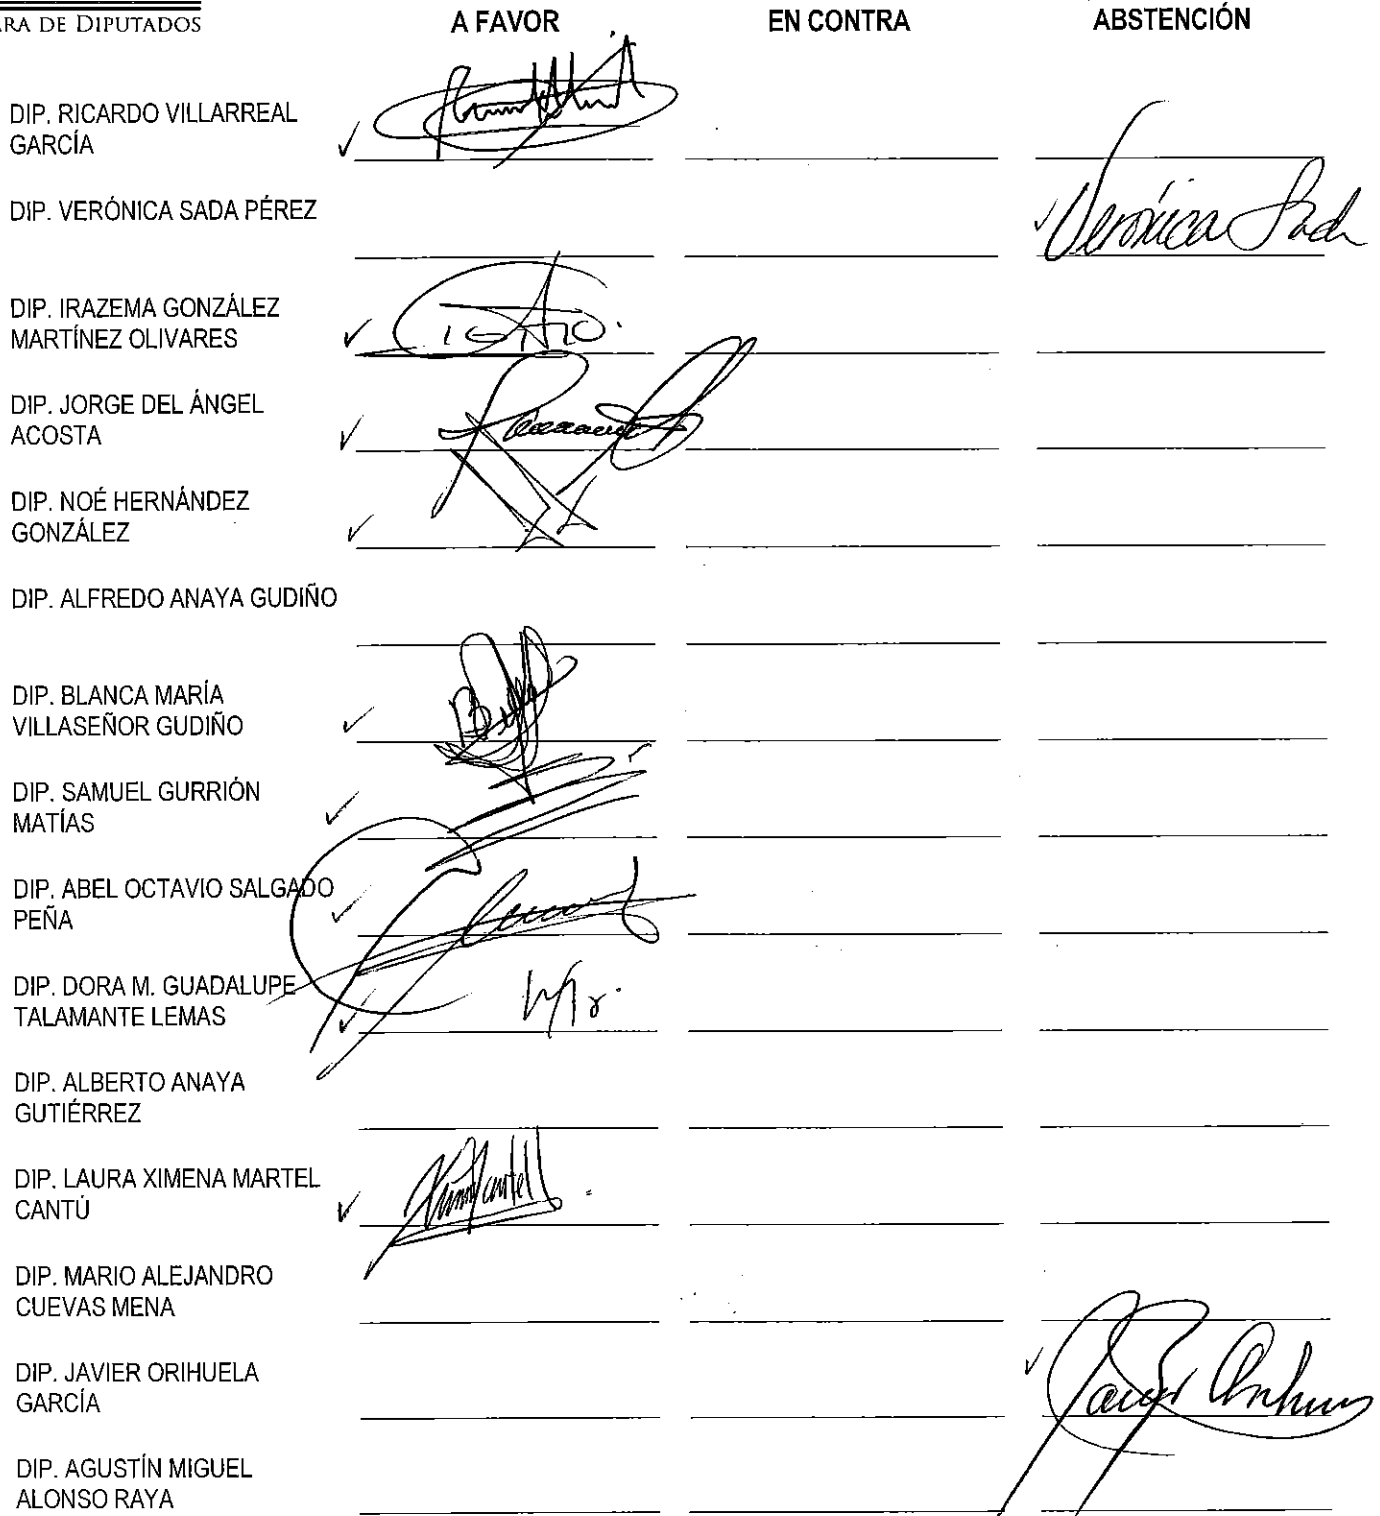 ARA DE DIPUTADOS
A FAVOR EN CONTRA ABSTENCIÓN
DIP. RICARDO VILLARREAL
GARCÍA
DIP. VERÓNICA SADA PÉREZ
Verónica Sada
DIP. IRAZEMA GONZÁLEZ
MARTÍNEZ OLIVARES
DIP. JORGE DEL ÁNGEL
ACOSTA
DIP. NOÉ HERNÁNDEZ
GONZÁLEZ
DIP. ALFREDO ANAYA GUDIÑO
DIP. BLANCA MARÍA
VILLASEÑOR GUDIÑO
DIP. SAMUEL GURRIÓN
MATÍAS
DIP. ABEL OCTAVIO SALGADO
PEÑA
DIP. DORA M. GUADALUPE
TALAMANTE LEMAS
DIP. ALBERTO ANAYA
GUTIÉRREZ
DIP. LAURA XIMENA MARTEL
CANTÚ
DIP. MARIO ALEJANDRO
CUEVAS MENA
DIP. JAVIER ORIHUELA
GARCÍA
DIP. AGUSTÍN MIGUEL
ALONSO RAYA